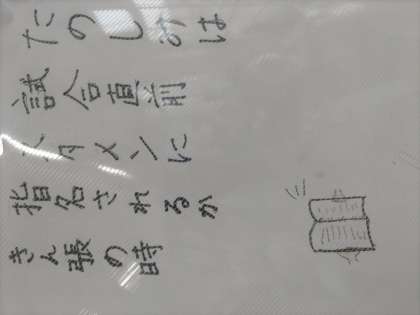 たのしみは
試合直前
スタメンに
指名されるか
きん張の時